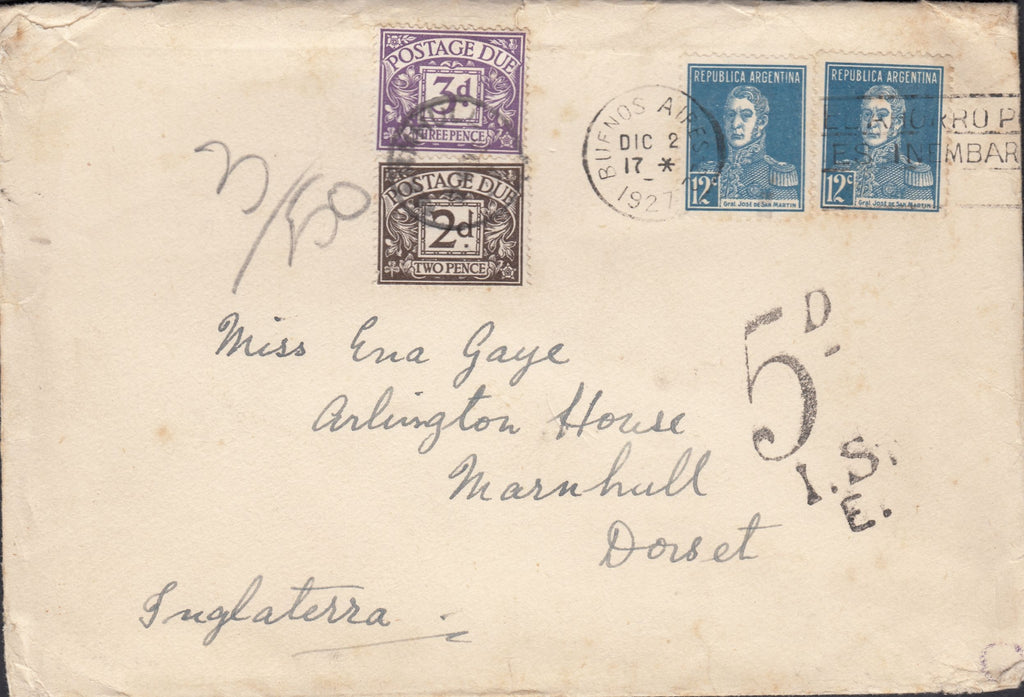 POSTAGE DUE
3d
THREE PENCE
POSTAGE DUE
2d.
TWO PENCE
BUENOS AIRES
DIC 2
17 *
1927
REPUBLICA ARGENTINA
12c
Gral. José de San Martin
REPUBLICA ARGENTINA
12c
Gral. José de San Martin
5D.
I.S.
E.
Miss Ena Gaye
Arlington House
Marnhull
Dorset
Inglaterra